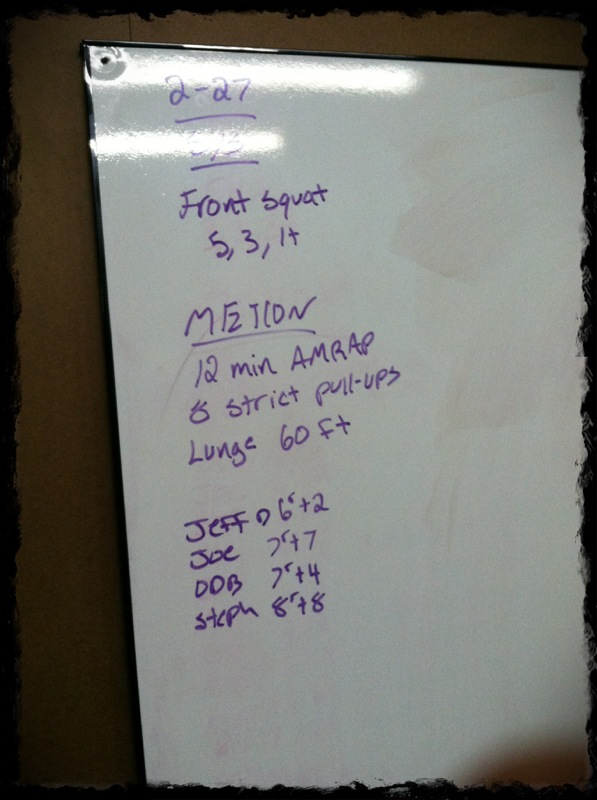 2-27
Front squat
5, 3, 1+
METCON
12 min AMRAP
8 strict pull-ups
Lunge 60 ft
Jeff D 6r+2
Joe 7r+7
DDB 7r+4
Steph 8r+8